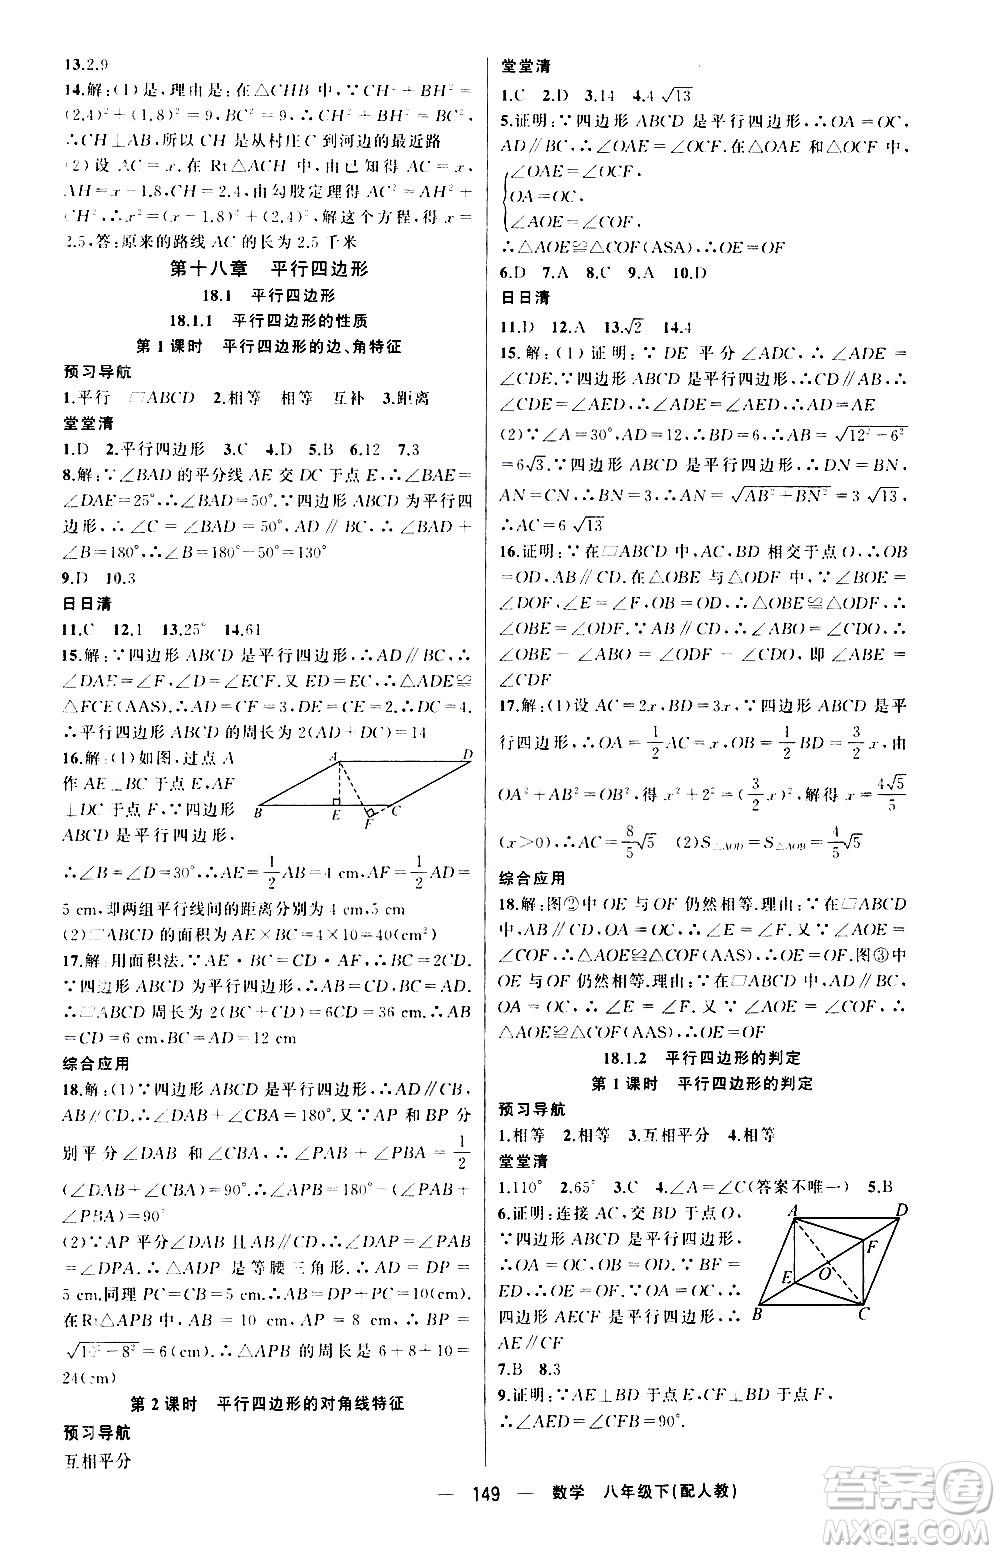 13.2.9
14.解:(1)是,理由是:在△CHB 中,∵CH²+BH²=
(2.4)²+(1.8)²=9,BC²=9,∴CH²+BH²=BC²,
∴CH⊥AB,所以 CH 是从村庄 C 到河边的最近路
(2)设 AC=x.在 Rt△ACH 中,由已知得 AC=x,
AH=x-1.8,CH=2.4,由勾股定理得 AC²=AH²+
CH²∴x²=(x-1.8)²+(2.4)² 解这个方程,得 x=
2.5,答:原来的路线 AC 的长为 2.5 千米
第十八章 平行四边形
18.1 平行四边形
18.1.1 平行四边形的性质
第 1 课时 平行四边形的边、角特征
预习导航
1.平行 ▱ABCD 2.相等 相等 互补 3.距离
堂堂清
1.D 2.平行四边形 3.C 4.D 5.B 6.12 7.3
8.解:∵∠BAD 的平分线 AE 交 DC 于点 E,∴∠BAE=
∠DAE=25°,∴∠BAD=50°.∵四边形 ABCD 为平行四
边形,∴∠C=∠BAD=50°,AD∥BC,∴∠BAD+
∠B=180°,∴∠B=180°-50°=130°
9.D 10.3
日日清
11.C 12.1 13.25° 14.61
15.解:∵四边形 ABCD 是平行四边形,∴AD∥BC,∴
∠DAE=∠F,∠D=∠ECF.又 ED=EC,∴△ADE≌
△FCE(AAS),∴AD=CF=3,DE=CE=2,∴DC=4.
∴平行四边形 ABCD 的周长为 2(AD+DC)=14
16.解:(1)如图,过点 A
作 AE⊥BC 于点 E,AF
⊥DC 于点 F,∵四边形
ABCD 是平行四边形,
A D B E C F
∴∠B=∠D=30°,∴AE=1/2 AB=4 cm,AF=1/2 AD=
5 cm,即两组平行线间的距离分别为 4 cm,5 cm
(2)▱ABCD 的面积为 AE×BC=4×10=40(cm²)
17.解:用面积法.∵AE·BC=CD·AF,∴BC=2CD.
∵四边形 ABCD 为平行四边形,∴AB=CD,BC=AD.
∴▱ABCD 周长为 2(BC+CD)=6CD=36 cm,∴AB
=CD=6 cm,BC=AD=12 cm
综合应用
18.解:(1)∵四边形 ABCD 是平行四边形,∴AD∥CB,
AB∥CD.∴∠DAB+∠CBA=180°.又∵AP 和 BP 分
别平分∠DAB 和∠CBA,∴∠PAB+∠PBA=1/2
(∠DAB+∠CBA)=90°.∴∠APB=180°-(∠PAB+
∠PBA)=90°
(2)∵AP 平分∠DAB 且 AB∥CD,∴∠DAP=∠PAB
=∠DPA.∴△ADP 是等腰三角形.∴AD=DP=
5 cm.同理 PC=CB=5 cm,∴AB=DC=DP+PC=10 cm.
在 Rt△APB 中,AB=10 cm,AP=8 cm,∴BP=
√(10²-8²)=6(cm),∴△APB 的周长为 6+8+10=
24(cm)
第 2 课时 平行四边形的对角线特征
预习导航
互相平分
堂堂清
1.C 2.D 3.14 4.4√13
5.证明:∵四边形 ABCD 是平行四边形,∴OA=OC,
AD∥BC,∴∠OAE=∠OCF,在△AOE 和△COF 中,
{∠OAE=∠OCF,
OA=OC,
∠AOE=∠COF,
∴△AOE≌△COF(ASA),∴OE=OF
6.D 7.A 8.C 9.A 10.D
日日清
11.D 12.A 13.√2 14.4
15.解:(1)证明:∵DE 平分∠ADC,∴∠ADE=
∠CDE.∵四边形 ABCD 是平行四边形,∴CD∥AB,∴
∠CDE=∠AED,∴∠ADE=∠AED,∴AD=AE
(2)∵∠A=30°,∠AND=90°,AD=12,∴DN=6,AN=√(12²-6²)
=6√3.∵四边形 ABCD 是平行四边形,∴DN=BN,
AN=CN=BN=3,∴AN=√(AB²+BN²)=3√13,
∴AC=6√13
16.证明:∵在▱ABCD 中,AC,BD 相交于点 O,∴OB
=OD,AB∥CD.在△OBE 与△ODF 中,∵∠BOE=
∠DOF,∠E=∠F,OB=OD,∴△OBE≌△ODF,∴
∠OBE=∠ODF,∵AB∥CD,∴∠ABO=∠CDO,∴
∠OBE-∠ABO=∠ODF-∠CDO,即∠ABE=
∠CDF
17.解:(1)设 AC=2x,则 BD=3x,∵四边形 ABCD 是平
行四边形,∴OA=1/2 AC=x,OB=1/2 BD=3/2 x,由
OA²+AB²=OB²,得 x²+2²=(3/2 x)²,解得 x=4√5/5
(x>0),∴AC=8/5 √5 (2)S△AOD=S△AOB=4/5 √5
综合应用
18.解:图②中 OE 与 OF 仍然相等.理由:∵在▱ABCD
中,AB∥CD,OA=OC,∴∠E=∠F.又∵∠AOE=
∠COF,∴△AOE≌△COF(AAS),∴OE=OF.图③中
OE 与 OF 仍然相等.理由:∵在▱ABCD 中,AD∥BC,
OA=OC,∴∠E=∠F.又∵∠AOE=∠COF,∴
△AOE≌△COF(AAS),∴OE=OF
18.1.2 平行四边形的判定
第 1 课时 平行四边形的判定
预习导航
1.相等 2.相等 3.互相平分 4.相等
堂堂清
1.110° 2.65° 3.C 4.∠A=∠C(答案不唯一) 5.B
6.证明:连接 AC,交 BD 于点 O,
∵四边形 ABCD 是平行四边形,
∴OA=OC,OB=OD.∵BF=
ED,∴OE=OF.∵OA=OC,∴
四边形 AECF 是平行四边形,∴
AE∥CF
A D F O E B C
7.B 8.3
9.证明:∵AE⊥BD 于点 E,CF⊥BD 于点 F,
∴∠AED=∠CFB=90°.
— 149 — 数学 八年级下(配人教)
答案圈
MXQE.COM